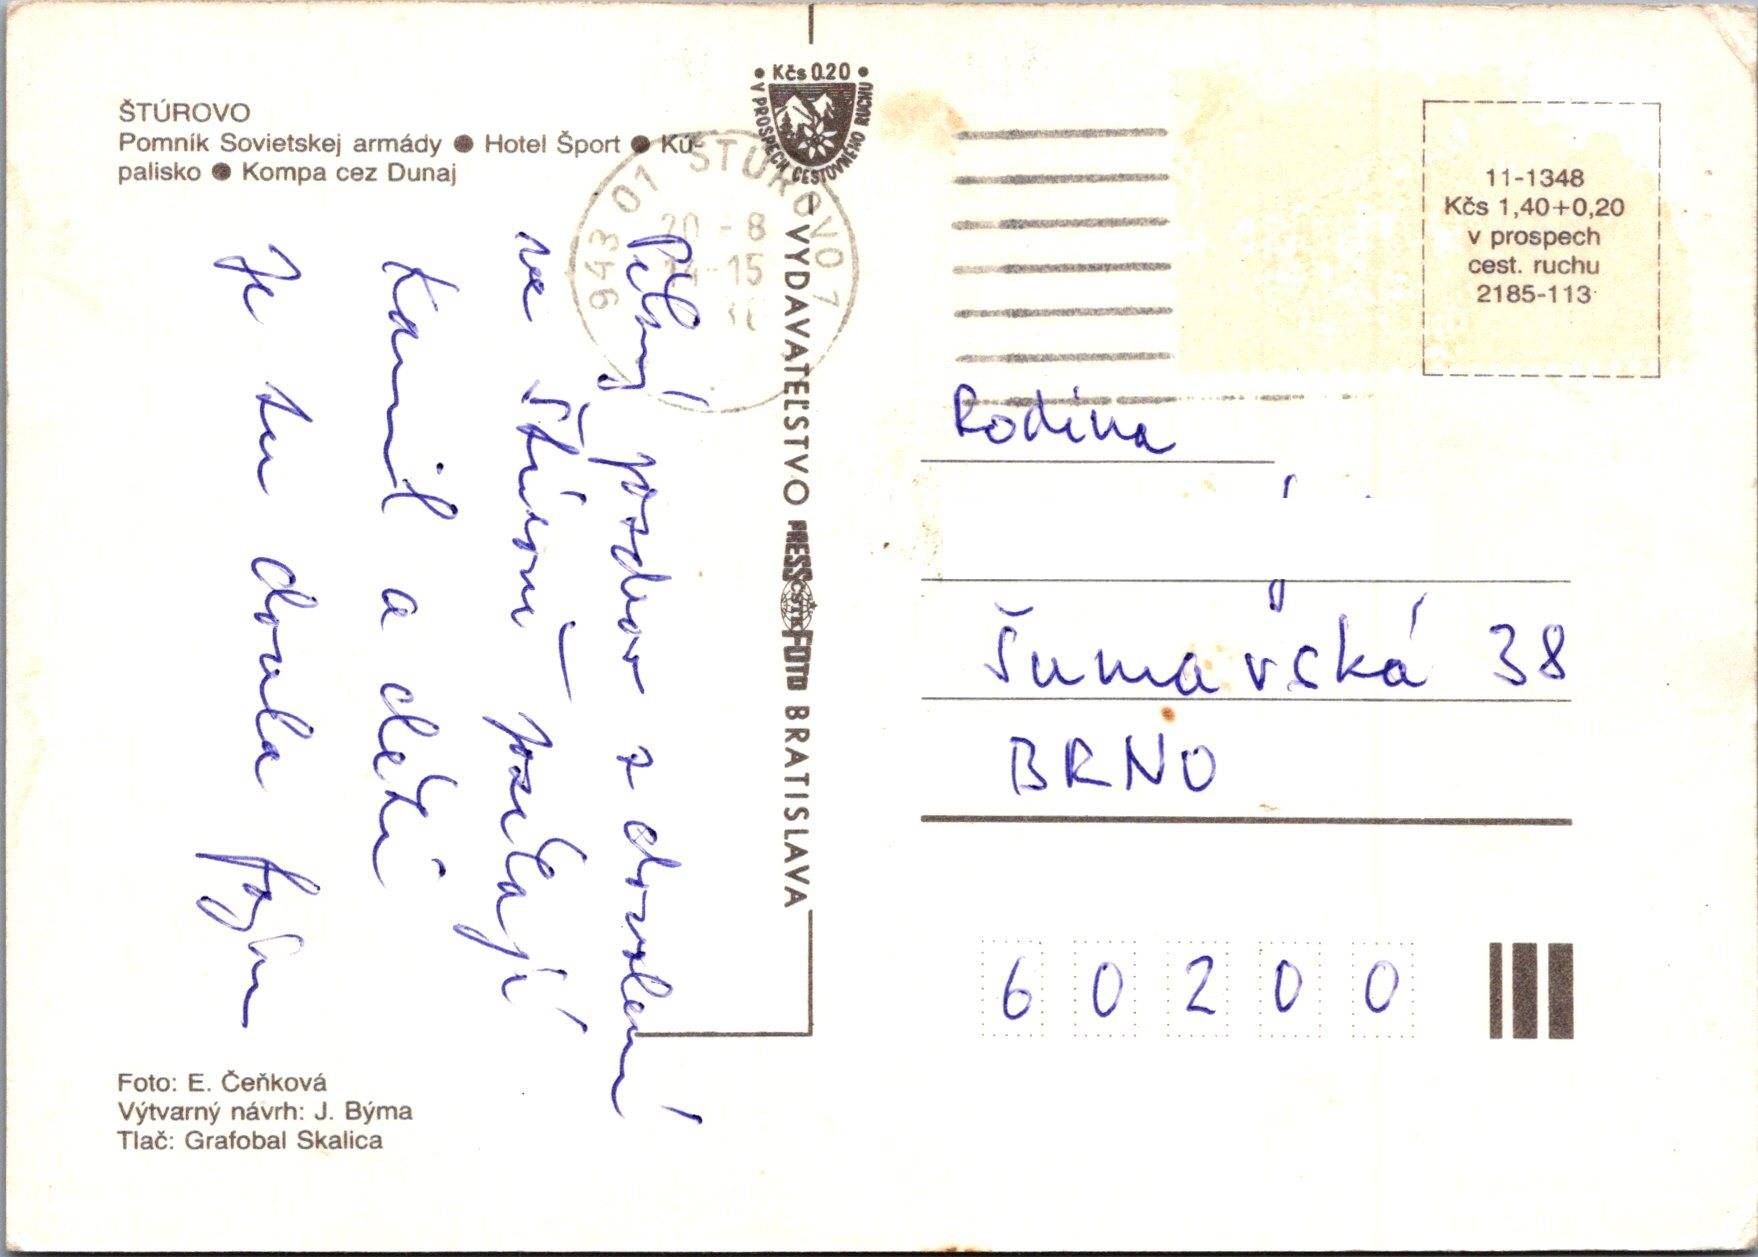 ŠTÚROVO
Pomník Sovietskej armády ● Hotel Šport ● Kú-
palisko ● Kompa cez Dunaj
• Kčs 0.20 •
V PROSPECH CESTOVNÉHO RUCHU
943 01 ŠTÚROVO 1
20 -8
-15
Pěkný pozdrav z dovolené
ve Štúrově posílají
Kamil a děti
Je tu docela fajn
VYDAVATEĽSTVO PRESSFOTO BRATISLAVA
ČSTK
11-1348
Kčs 1,40+0,20
v prospech
cest. ruchu
2185-113
Rodina
Šumavská 38
BRNO
60200
Foto: E. Čeňková
Výtvarný návrh: J. Býma
Tlač: Grafobal Skalica